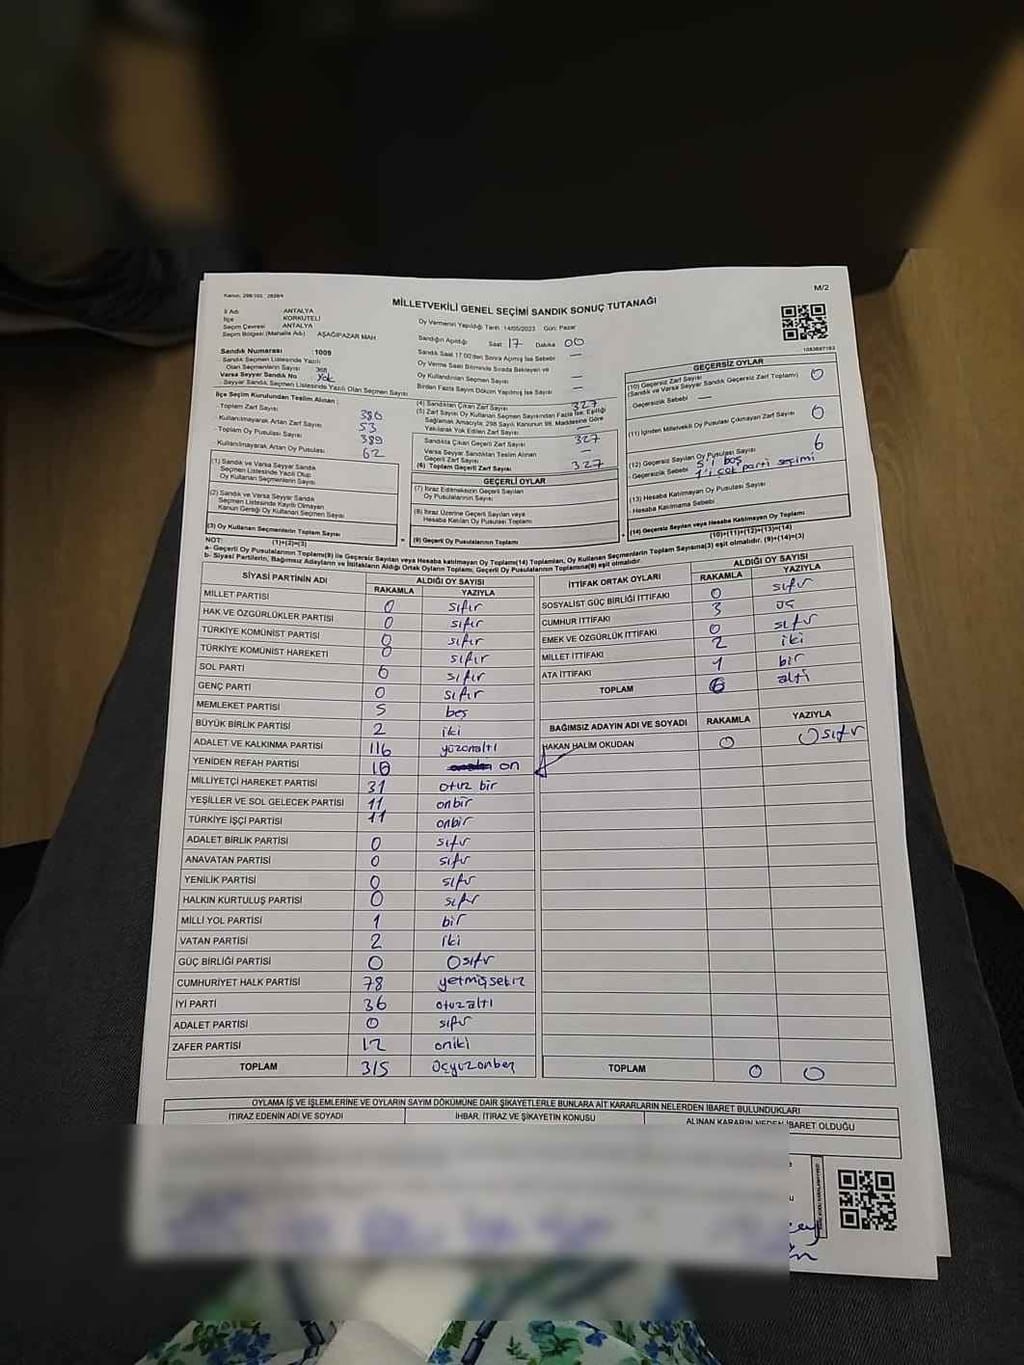 M/2
MİLLETVEKİLİ GENEL SEÇİMİ SANDIK SONUÇ TUTANAĞI
İl Adı : ANTALYA
İlçe : KORKUTELİ
Seçim Çevresi : ANTALYA
Seçim Bölgesi (Mahalle Adı) : AŞAĞIPAZAR MAH
Oy Vermenin Yapıldığı Tarih :14/05/2023 Gün: Pazar
Sandığın Açıldığı Saat : 17 Dakika 00
Sandık Numarası :1009
Sandık Seçmen Listesinde Yazılı
Olan Seçmenlerin Sayısı : 368
Varsa Seyyar Sandık No : Yok
Seyyar Sandık Seçmen Listesinde Yazılı Olan Seçmen Sayısı
Sandık Saat 17.00'den Sonra Açılmış İse Sebebi —
Oy Verme Saati Bitiminde Sırada Bekleyen ve
Oy Kullandırılan Seçmen Sayısı —
Birden Fazla Sayım Döküm Yapılmış İse Sayısı —
İlçe Seçim Kurulundan Teslim Alınan :
Toplam Zarf Sayısı 380
Kullanılmayarak Artan Zarf Sayısı 53
Toplam Oy Pusulası Sayısı 389
Kullanılmayarak Artan Oy Pusulası 62
(1) Sandık ve Varsa Seyyar Sandık
Seçmen Listesinde Yazılı Olup
Oy Kullanan Seçmenlerin Sayısı
(2) Sandık ve Varsa Seyyar Sandık
Seçmen Listesinde Kayıtlı Olmayan
Kanun Gereği Oy Kullanan Seçmen Sayısı
(3) Oy Kullanan Seçmenlerin Toplam Sayısı
(1)+(2)=(3)
(4) Sandıktan Çıkan Zarf Sayısı 327
(5) Zarf Sayısı Oy Kullanan Seçmen Sayısından Fazla İse, Eşitliği
Sağlamak Amacıyla, 298 Sayılı Kanunun 98. Maddesine Göre
Yakılarak Yok Edilen Zarf Sayısı —
Sandıkta Çıkan Geçerli Zarf Sayısı 327
Varsa Seyyar Sandıktan Teslim Alınan
Geçerli Zarf Sayısı —
(6) Toplam Geçerli Zarf Sayısı 327
GEÇERLİ OYLAR
(7) İtiraz Edilmeksizin Geçerli Sayılan
Oy Pusulalarının Sayısı
(8) İtiraz Üzerine Geçerli Sayılan veya
Hesaba Katılan Oy Pusulası Toplamı
(9) Geçerli Oy Pusulaları Toplamı
GEÇERSİZ OYLAR
(10) Geçersiz Zarf Sayısı
(Sandık ve Varsa Seyyar Sandık Geçersiz Zarf Toplamı) 0
Geçersizlik Sebebi —
(11) İçinden Milletvekili Oy Pusulası Çıkmayan Zarf Sayısı 0
(12) Geçersiz Sayılan Oy Pusulası Sayısı 6
Geçersizlik Sebebi 5'i boş
1'i çok parti seçimi
(13) Hesaba Katılmayan Oy Pusulası Sayısı
Hesaba Katılmama Sebebi
(14) Geçersiz Sayılan veya Hesaba Katılmayan Oy Toplamı
(10)+(11)+(12)+(13)=(14)
NOT:
a- Geçerli Oy Pusulalarının Toplamı(9) ile Geçersiz Sayılan veya Hesaba katılmayan Oy Toplamı(14) Toplamları, Oy Kullanan Seçmenlerin Toplam Sayısına(3) eşit olmalıdır. (9)+(14)=(3)
b- Siyasi Partilerin, Bağımsız Adayların ve İttifakların Aldığı Ortak Oyların Toplamı; Geçerli Oy Pusulalarının Toplamına(9) eşit olmalıdır.
SİYASİ PARTİNİN ADI ALDIĞI OY SAYISI
RAKAMLA YAZIYLA
MİLLET PARTİSİ 0 sıfır
HAK VE ÖZGÜRLÜKLER PARTİSİ 0 sıfır
TÜRKİYE KOMÜNİST PARTİSİ 0 sıfır
TÜRKİYE KOMÜNİST HAREKETİ 0 sıfır
SOL PARTİ 0 sıfır
GENÇ PARTİ 0 sıfır
MEMLEKET PARTİSİ 5 beş
BÜYÜK BİRLİK PARTİSİ 2 iki
ADALET VE KALKINMA PARTİSİ 116 yüzonaltı
YENİDEN REFAH PARTİSİ 10 on
MİLLİYETÇİ HAREKET PARTİSİ 31 otuz bir
YEŞİLLER VE SOL GELECEK PARTİSİ 11 onbir
TÜRKİYE İŞÇİ PARTİSİ 11 onbir
ADALET BİRLİK PARTİSİ 0 sıfır
ANAVATAN PARTİSİ 0 sıfır
YENİLİK PARTİSİ 0 sıfır
HALKIN KURTULUŞ PARTİSİ 0 sıfır
MİLLİ YOL PARTİSİ 1 bir
VATAN PARTİSİ 2 iki
GÜÇ BİRLİĞİ PARTİSİ 0 0 sıfır
CUMHURİYET HALK PARTİSİ 78 yetmişsekiz
İYİ PARTİ 36 otuzaltı
ADALET PARTİSİ 0 sıfır
ZAFER PARTİSİ 12 oniki
TOPLAM 315 üçyüzonbeş
İTTİFAK ORTAK OYLARI ALDIĞI OY SAYISI
RAKAMLA YAZIYLA
SOSYALİST GÜÇ BİRLİĞİ İTTİFAKI 0 sıfır
CUMHUR İTTİFAKI 3 üç
EMEK VE ÖZGÜRLÜK İTTİFAKI 0 sıfır
MİLLET İTTİFAKI 2 iki
ATA İTTİFAKI 1 bir
TOPLAM 6 altı
BAĞIMSIZ ADAYIN ADI VE SOYADI RAKAMLA YAZIYLA
HAKAN HALİM OKUDAN 0 0 sıfır
TOPLAM 0 0
OYLAMA İŞ VE İŞLEMLERİNE VE OYLARIN SAYIM DÖKÜMÜNE DAİR ŞİKAYETLERLE BUNLARA AİT KARARLARIN NELERDEN İBARET BULUNDUKLARI
İTİRAZ EDENİN ADI VE SOYADI İHBAR, İTİRAZ VE ŞİKAYETİN KONUSU ALINAN KARARIN NEDEN İBARET OLDUĞU